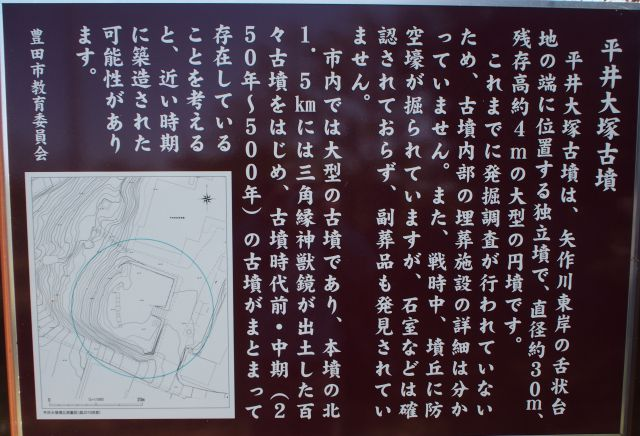 平井大塚古墳
平井大塚古墳は、矢作川東岸の舌状台
地の端に位置する独立墳で、直径約30m、
残存高約4mの大型の円墳です。
これまでに発掘調査が行われていない
ため、古墳内部の埋葬施設の詳細は分か
っていません。また、戦時中、墳丘に防
空壕が掘られていますが、石室などは確
認されておらず、副葬品も発見されてい
ません。
市内では大型の古墳であり、本墳の北
1.5kmには三角縁神獣鏡が出土した百
々古墳をはじめ、古墳時代前・中期（2
50年〜500年）の古墳がまとまって
存在している
ことを考える
と、近い時期
に築造された
可能性があり
ます。
豊田市教育委員会